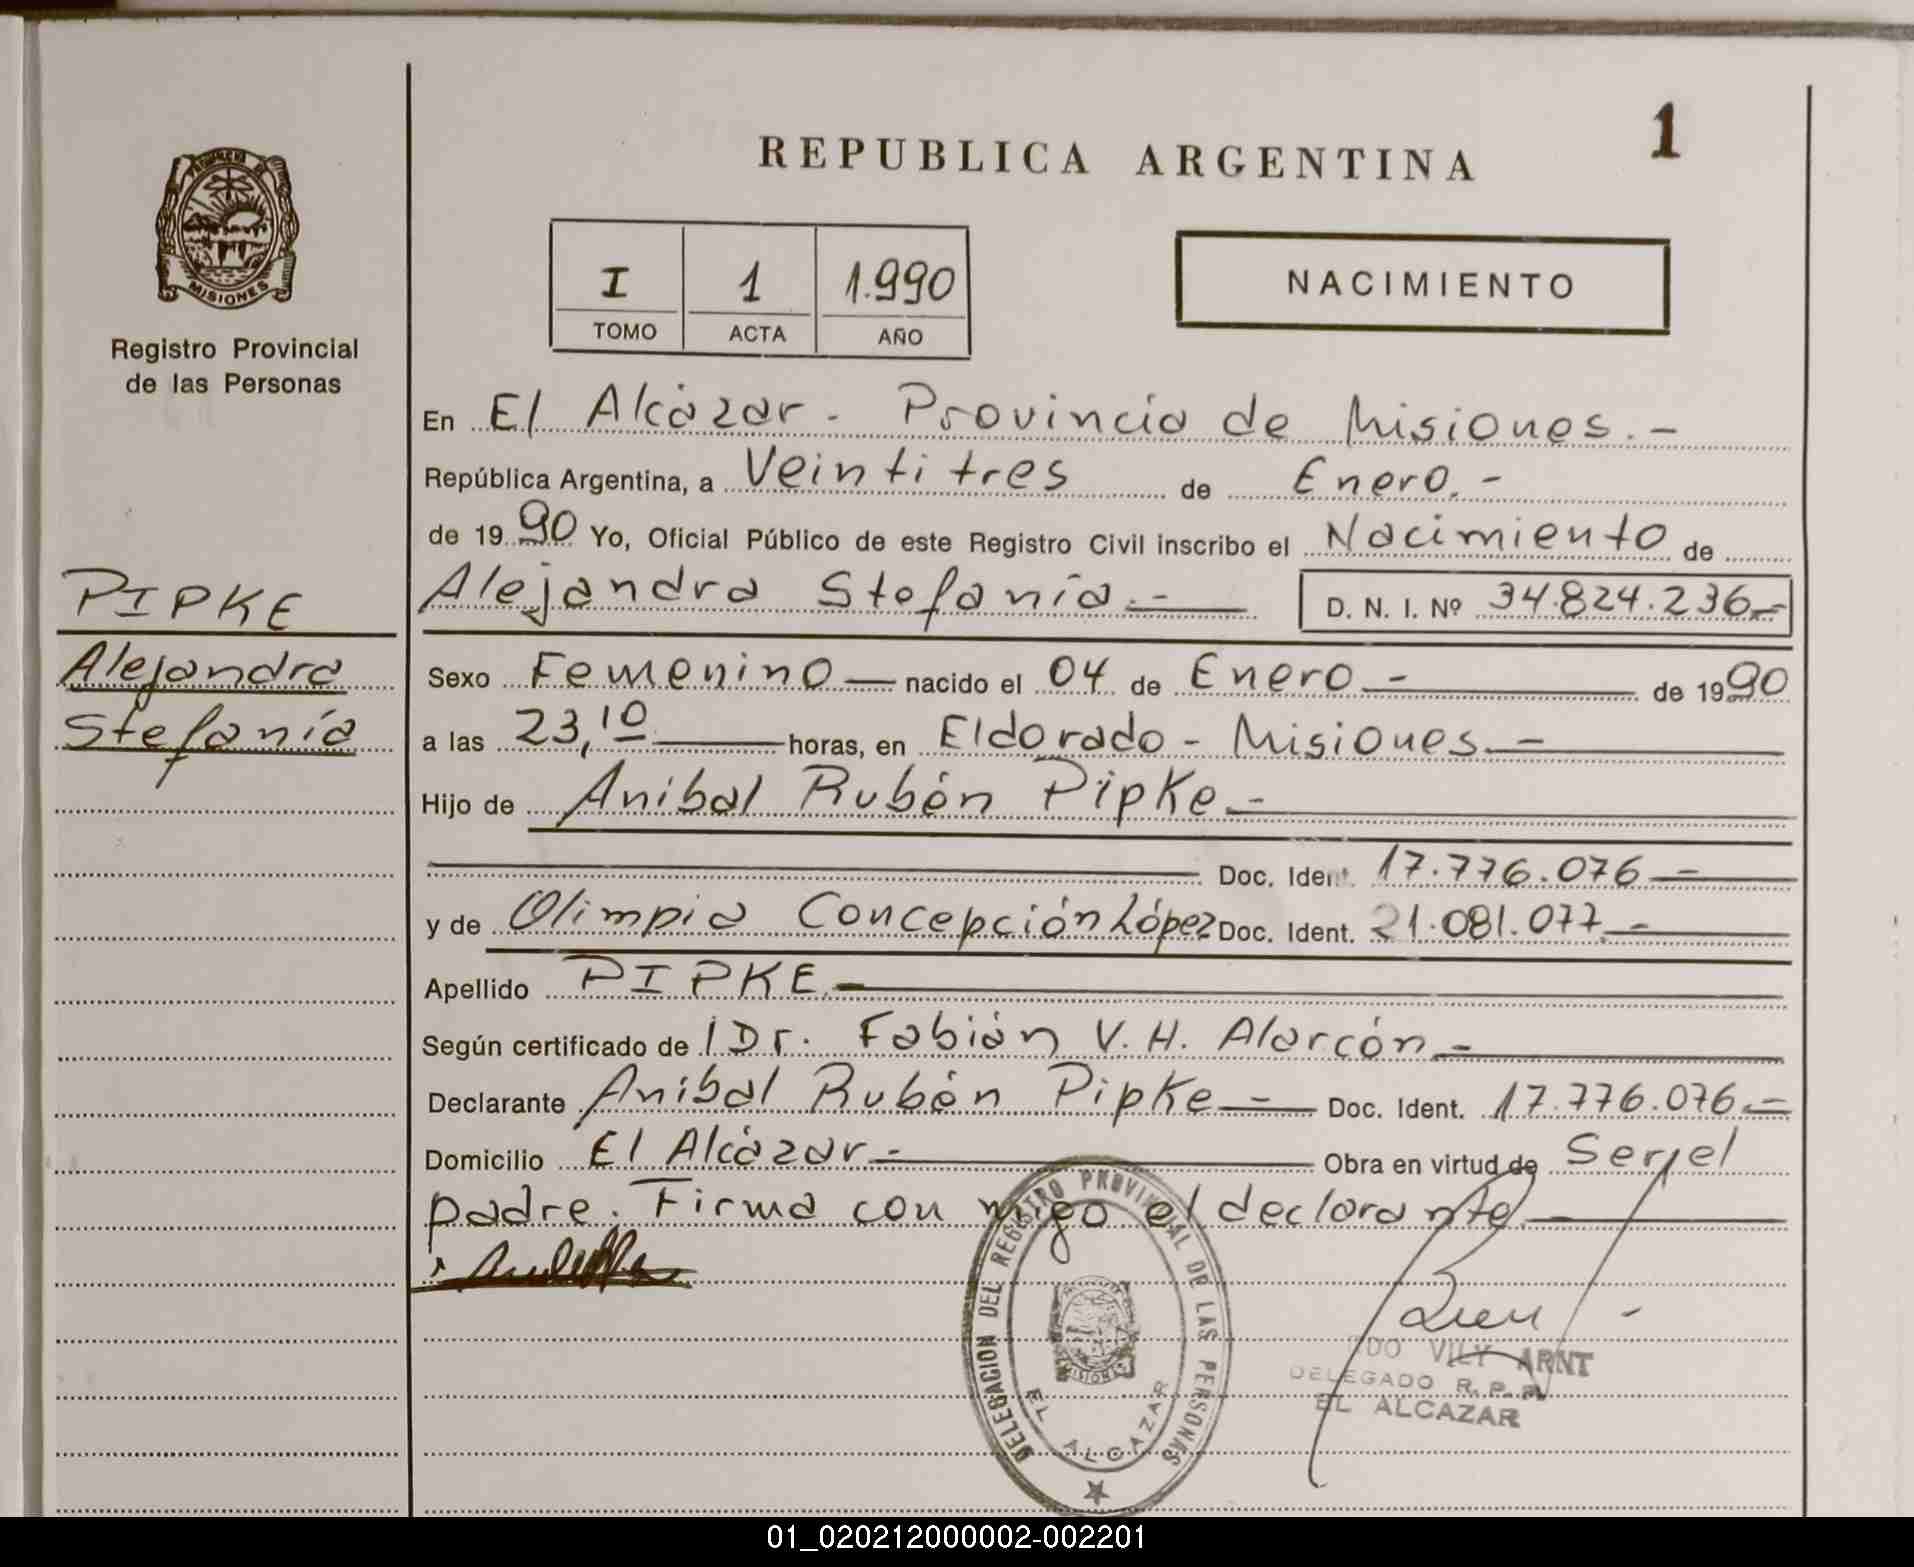 REPUBLICA ARGENTINA
1
MISIONES
Registro Provincial
de las Personas
I 1 1.990
TOMO ACTA AÑO
NACIMIENTO
En El Alcázar - Provincia de Misiones.-
República Argentina, a Veintitres de Enero.-
de 1990 Yo, Oficial Público de este Registro Civil inscribo el Nacimiento de
Alejandra Stefanía.- D. N. I. Nº 34.824.236.-
PIPKE
Alejandra
Stefanía
Sexo Femenino — nacido el 04 de Enero - de 1990
a las 23,10 horas, en Eldorado - Misiones.-
Hijo de Aníbal Rubén Pipke.-
Doc. Ident. 17.776.076.-
y de Olimpia Concepción López Doc. Ident. 21.081.077.-
Apellido PIPKE.-
Según certificado de Dr. Fabián V. H. Alarcón.-
Declarante Aníbal Rubén Pipke.- Doc. Ident. 17.776.076.-
Domicilio El Alcázar.- Obra en virtud de Ser el
padre. Firma con migo el declarante.-
DELEGACION DEL REGISTRO PROVINCIAL DE LAS PERSONAS
MISIONES
EL ALCAZAR
VILY ARNT
DELEGADO R. P. P.
EL ALCAZAR
01_020212000002-002201